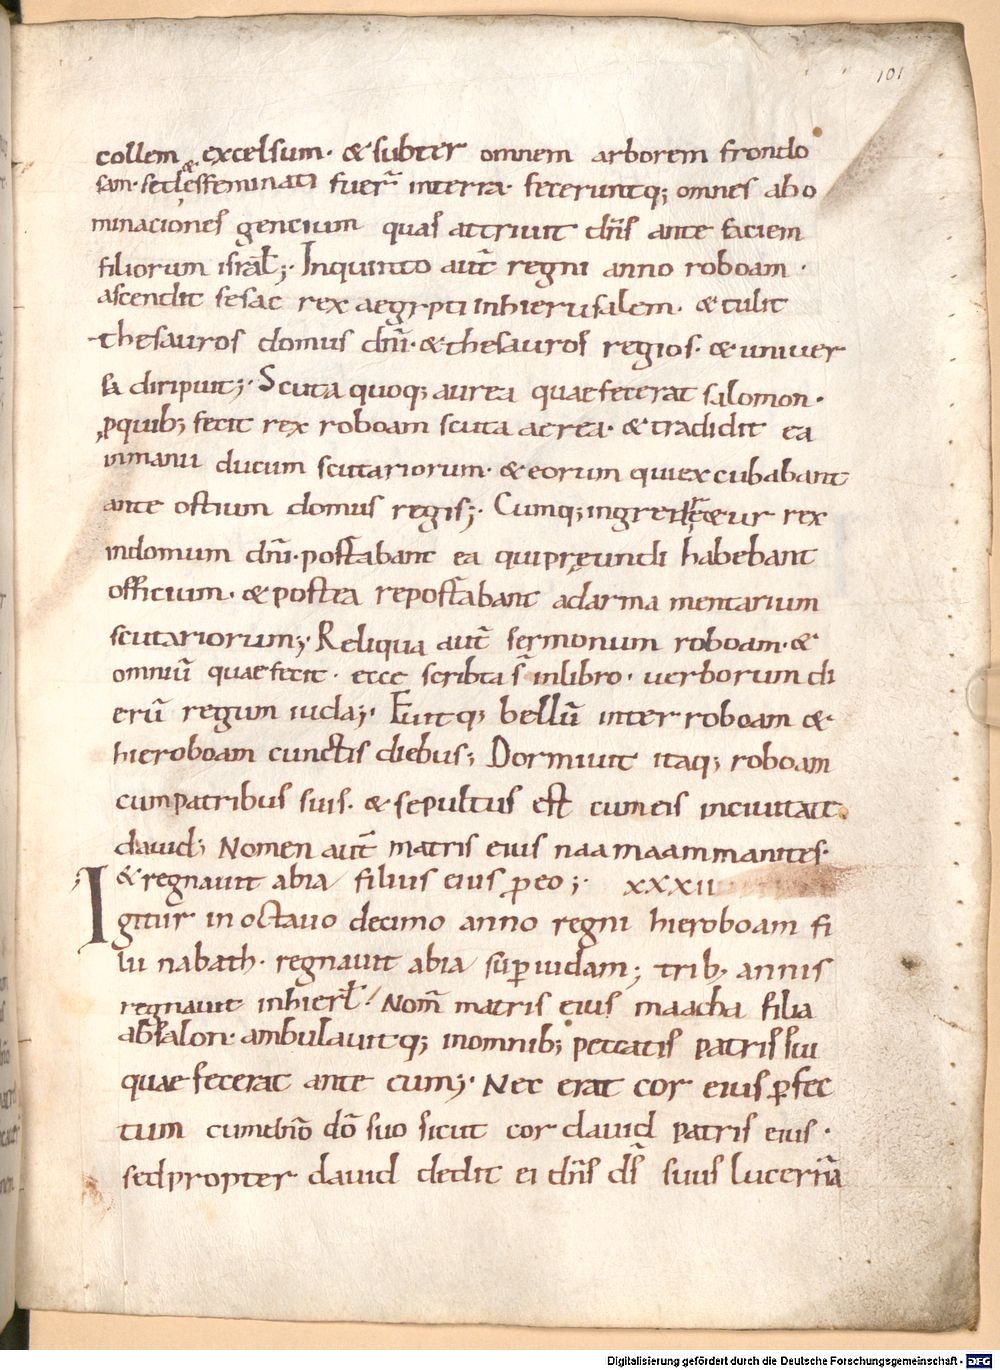 101
collem excelsum· & subter omnem arborem frondo
sam· sed & effeminati fuer̄ interra· feceruntq; omnes abo
minaciones gencium quas attriuit dn̄s ante faciem
filiorum isrāl;· Inquinto aut̄ regni anno roboam·
ascendit sesac rex aegypti inhierusalem· & tulit
thesauros domus dn̄i· & thesauros regios· & uniuer
sa diripuit;· Scuta quoq; aurea quae fecerat salomon·
ꝓquib; fecit rex roboam scuta aerea· & tradidit ea
inmanu ducum scutariorum· & eorum quiexcubabant
ante ostium domus regis;· Cumq; ingrederetur rex
indomum dn̄i· portabant ea qui pręeundi habebant
officium· & postea reportabant adarmamentarium
scutariorum;· Reliqua aut̄ sermonum roboam· &
omniū quae fecit· ecce scribta s̄ inlibro· uerborum di
erū regum iuda;· Fuitq; bellū inter roboam &
hieroboam cunctis diebus; Dormiuit itaq; roboam
cumpatribus suis· & sepultus est cumeis inciuitate
dauid; Nomen aut̄ matris eius naama ammanites·
& regnauit abia filius eius ꝑ eo;· xxxii
Igitur in octauo decimo anno regni hieroboam fi
lii nabath· regnauit abia suꝑ iudam; trib; annis
regnauit inhierl̄! Nom̄ matris eius maacha filia
absalon· ambulauitq; inomnib; peccatis patris sui
quae fecerat ante eum;· Nec erat cor eius ꝑfec
tum cumdn̄o dō suo sicut cor dauid patris eius·
sed propter dauid dedit ei dn̄s ds̄ suus lucernā
Digitalisierung gefördert durch die Deutsche Forschungsgemeinschaft - DFG